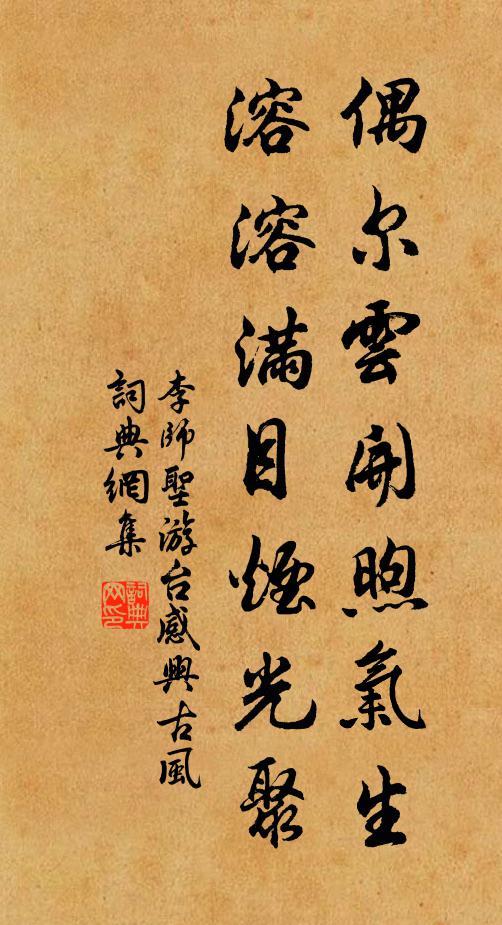 偶尔雲開煦氣生
溶溶滿目煙光聚
李師聖游台感興古風
詞典網集
詞典
网印